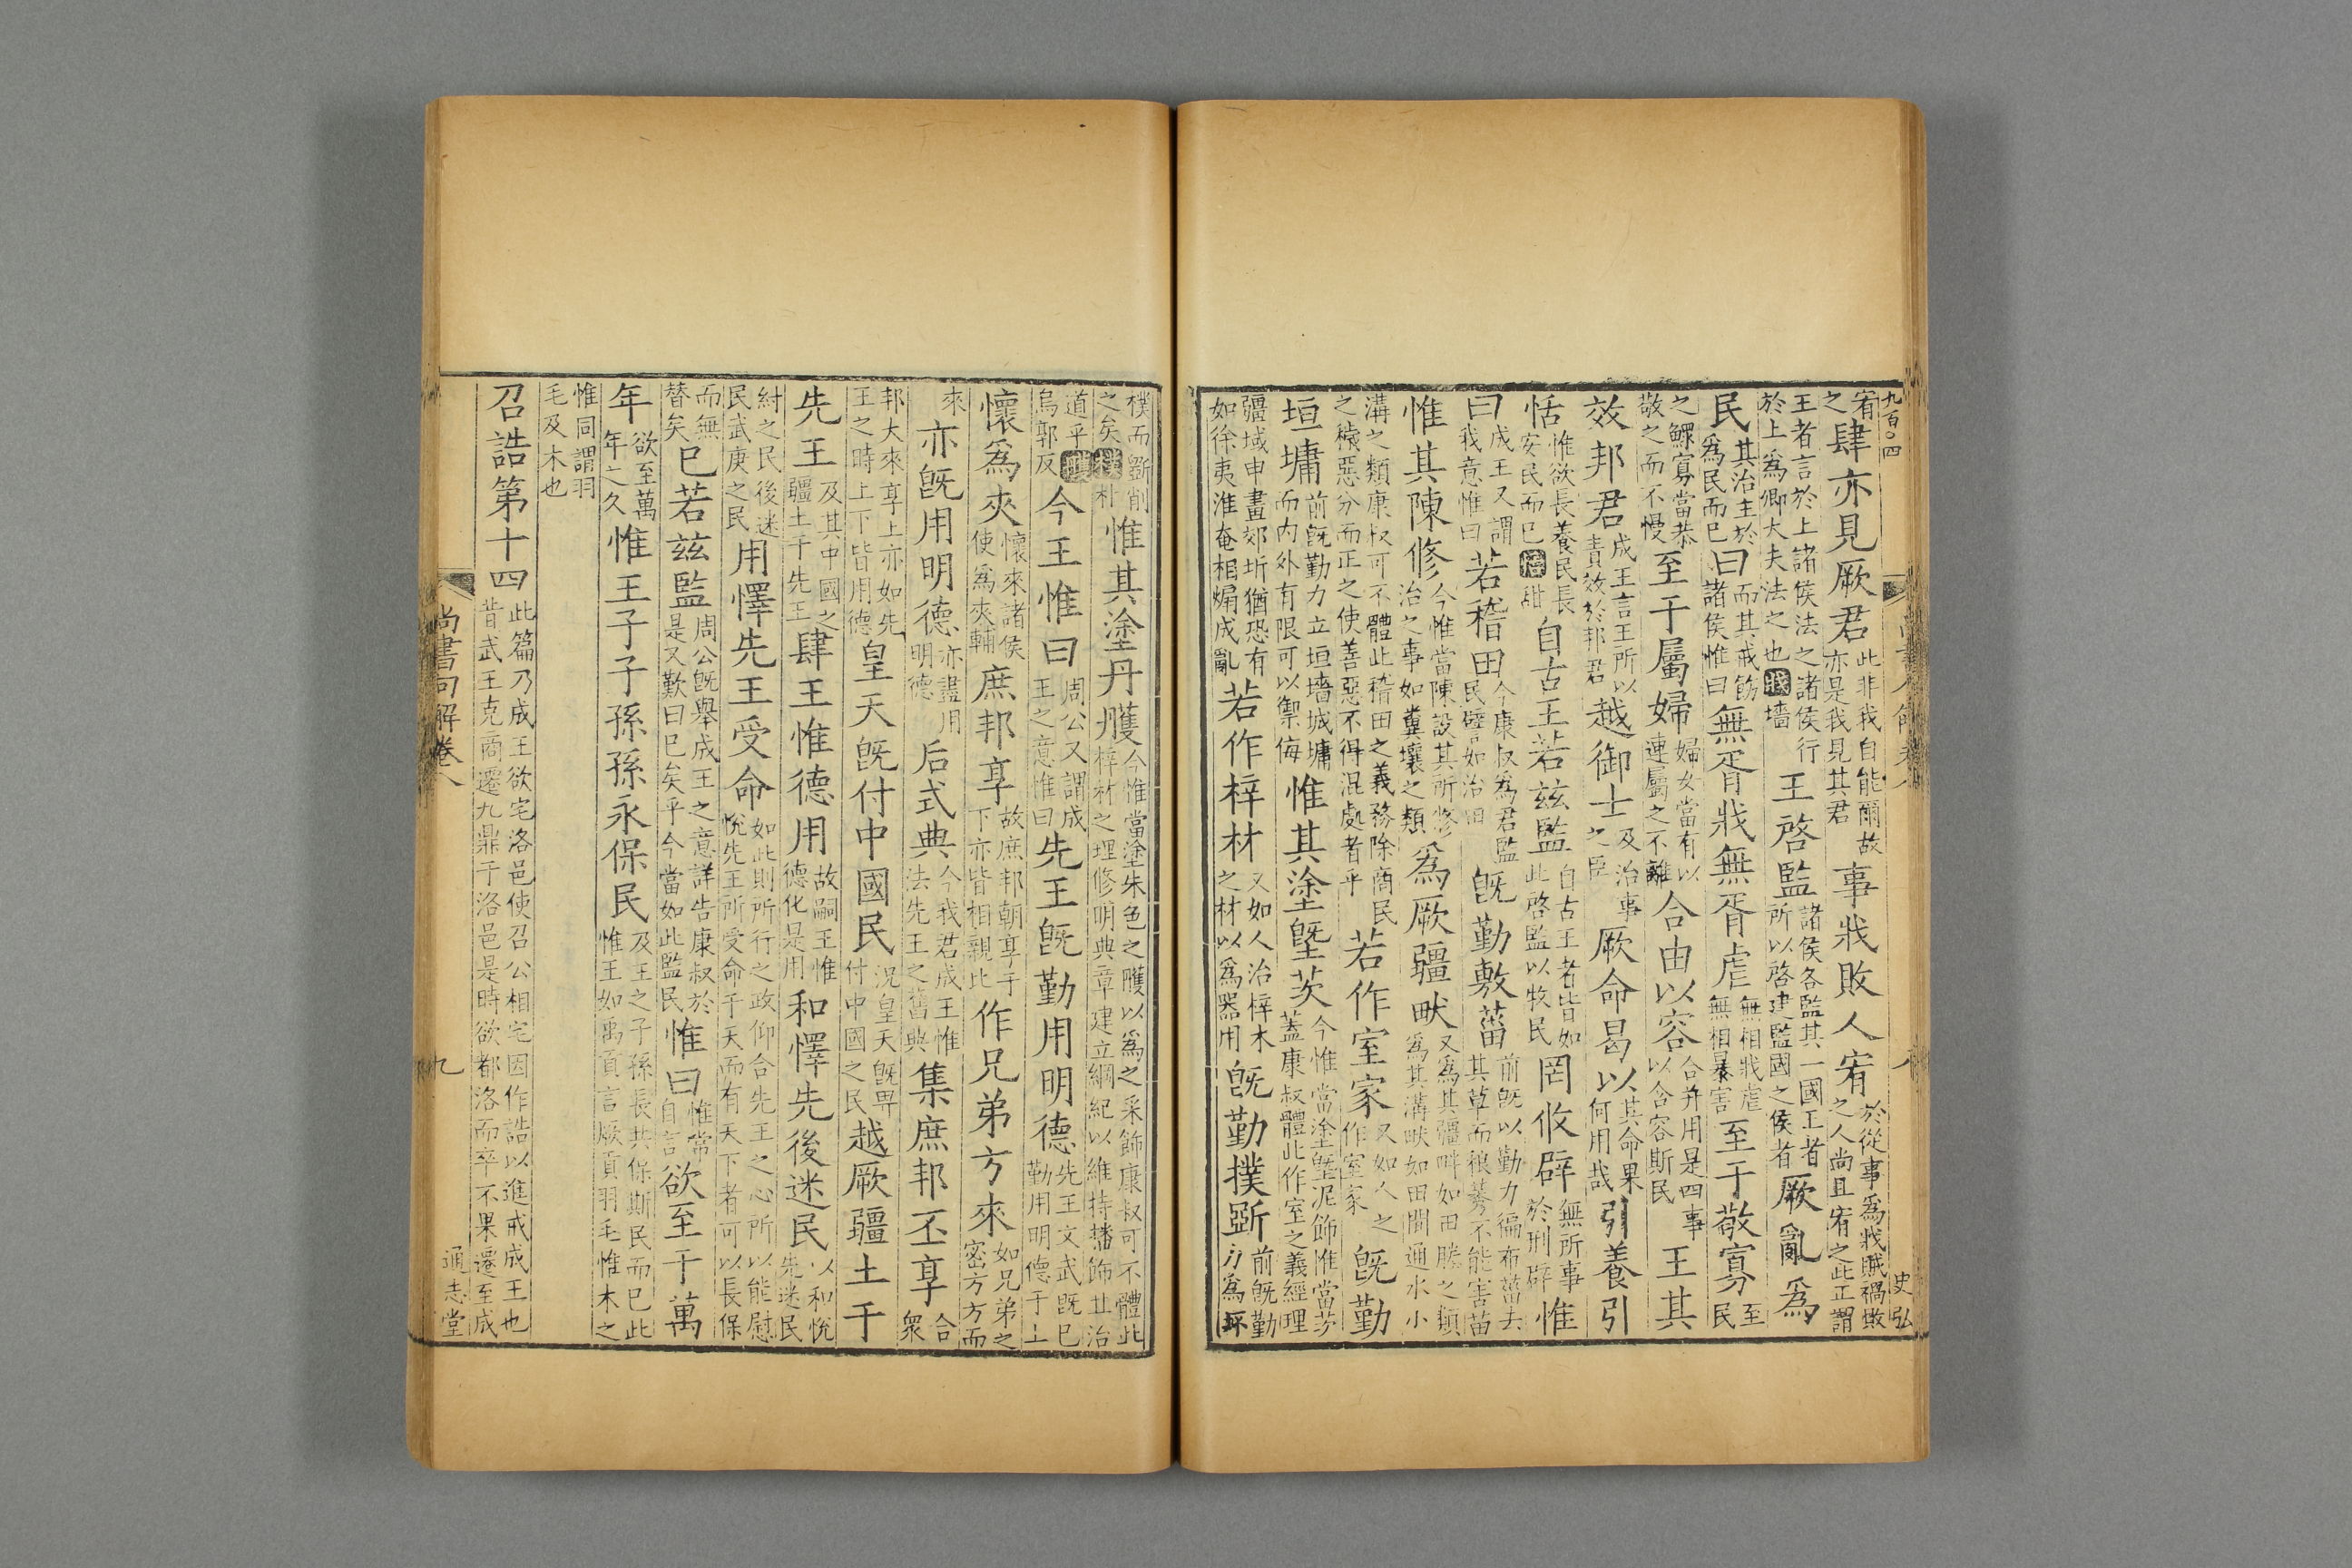 九百〇四
宥之肆亦見厥君此非我自能爾故亦是我見其君事戕敗人宥於從事爲戕賊禍敗之人尚且宥之此正謂
王者言於上諸侯法之諸侯行於上爲卿大夫法之也戕墻王啓監諸侯各監其一國王者所以啓建監國之侯者厥亂爲
民其治主於爲民而已曰而其戒飭諸侯惟曰無胥戕無胥虐無相戕虐無相暴害至于敬寡至民
之鰥寡當恭敬之而不慢至于屬婦婦女當有以連屬之不離合由以容合并用是四事以含容斯民王其
效邦君成王言王所以責效於邦君越御士及治事之臣厥命曷以其命果何用哉引養引
恬惟欲長養民長安民而已恬甜自古王若兹監自古王者皆如此啓監以牧民罔攸辟無所事於刑辟惟
曰成王又謂我意惟曰若稽田今康叔爲君監民譬如治田旣勤敷菑前旣以勤力徧布菑去其草而稂莠不能害苗
惟其陳修今惟當陳設其所修治之事如糞壤之類爲厥疆畎又爲其疆畔如田塍之類爲其溝畎如田間通水小
溝之類康叔可不體此稽田之義務除商民之穢惡分而正之使善惡不得混處者乎若作室家又如人之作室家旣勤
垣墉前旣勤力立垣墻城墉而内外有限可以禦侮惟其塗塈茨今惟當塗塈泥飾惟當茅蓋康叔體此作室之義經理
疆域申畫郊圻猶恐有如徐夷淮奄相煽成亂若作梓材又如人治梓木之材以爲器用旣勤撲斲前旣勤力爲坏
史弘
八
樸而斲削之矣樸朴惟其塗丹雘梓材今惟當塗朱色之雘以爲之采飾康叔可不體此梓材之理修明典章建立綱紀以維持播飾丗治
道乎雘烏郭反今王惟曰周公又謂成王之意惟曰先王旣勤用明德先王文武旣已勤用明德于上
懷爲夾懷來諸侯使爲夾輔庶邦享故庶邦朝享于下亦皆相親比作兄弟方來如兄弟之密方方而
來亦旣用明德亦盡用明德后式典今我君成王惟法先王之舊典集庶邦丕享合衆
邦大來享上亦如先王之時上下皆用德皇天旣付中國民況皇天旣畀付中國之民越厥疆土于
先王及其中國之疆土于先王肆王惟德用故嗣王惟德化是用和懌先後迷民以和悅先迷民
紂之民後迷民武庚之民用懌先王受命如此則所行之政仰合先王之心所以能慰悅先王所受命于天而有天下者可以長保
而無替矣已若兹監周公旣舉成王之意詳告康叔於是又歎曰已矣乎今當如此監民惟曰惟當自言欲至于萬
年欲至萬年之久惟王子子孫孫永保民及王之子孫長共保斯民而已此惟王如禹貢言厥貢羽毛惟木之
惟同謂羽毛及木也
召誥第十四此篇乃成王欲宅洛邑使召公相宅因作誥以進戒成王也昔武王克商遷九鼎于洛邑是時欲都洛而卒不果遷至成
尚書句解卷八
九
通志堂